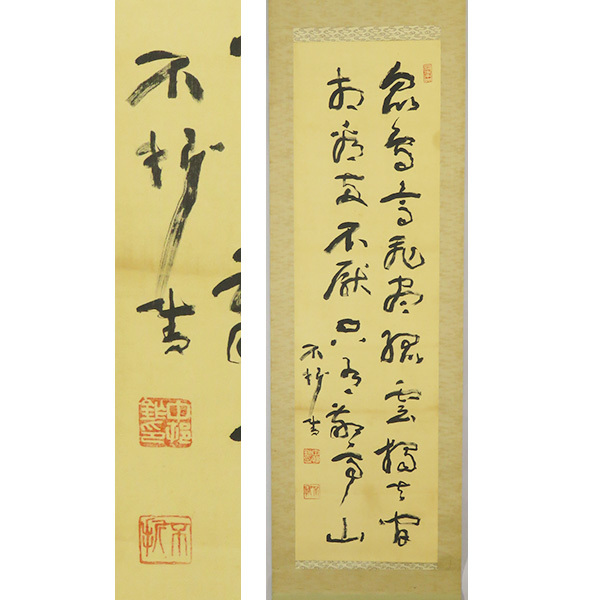 不折書
中邨鈼印
不折
衆鳥高飛盡孤雲獨去閒
相看兩不厭只有敬亭山
不折書